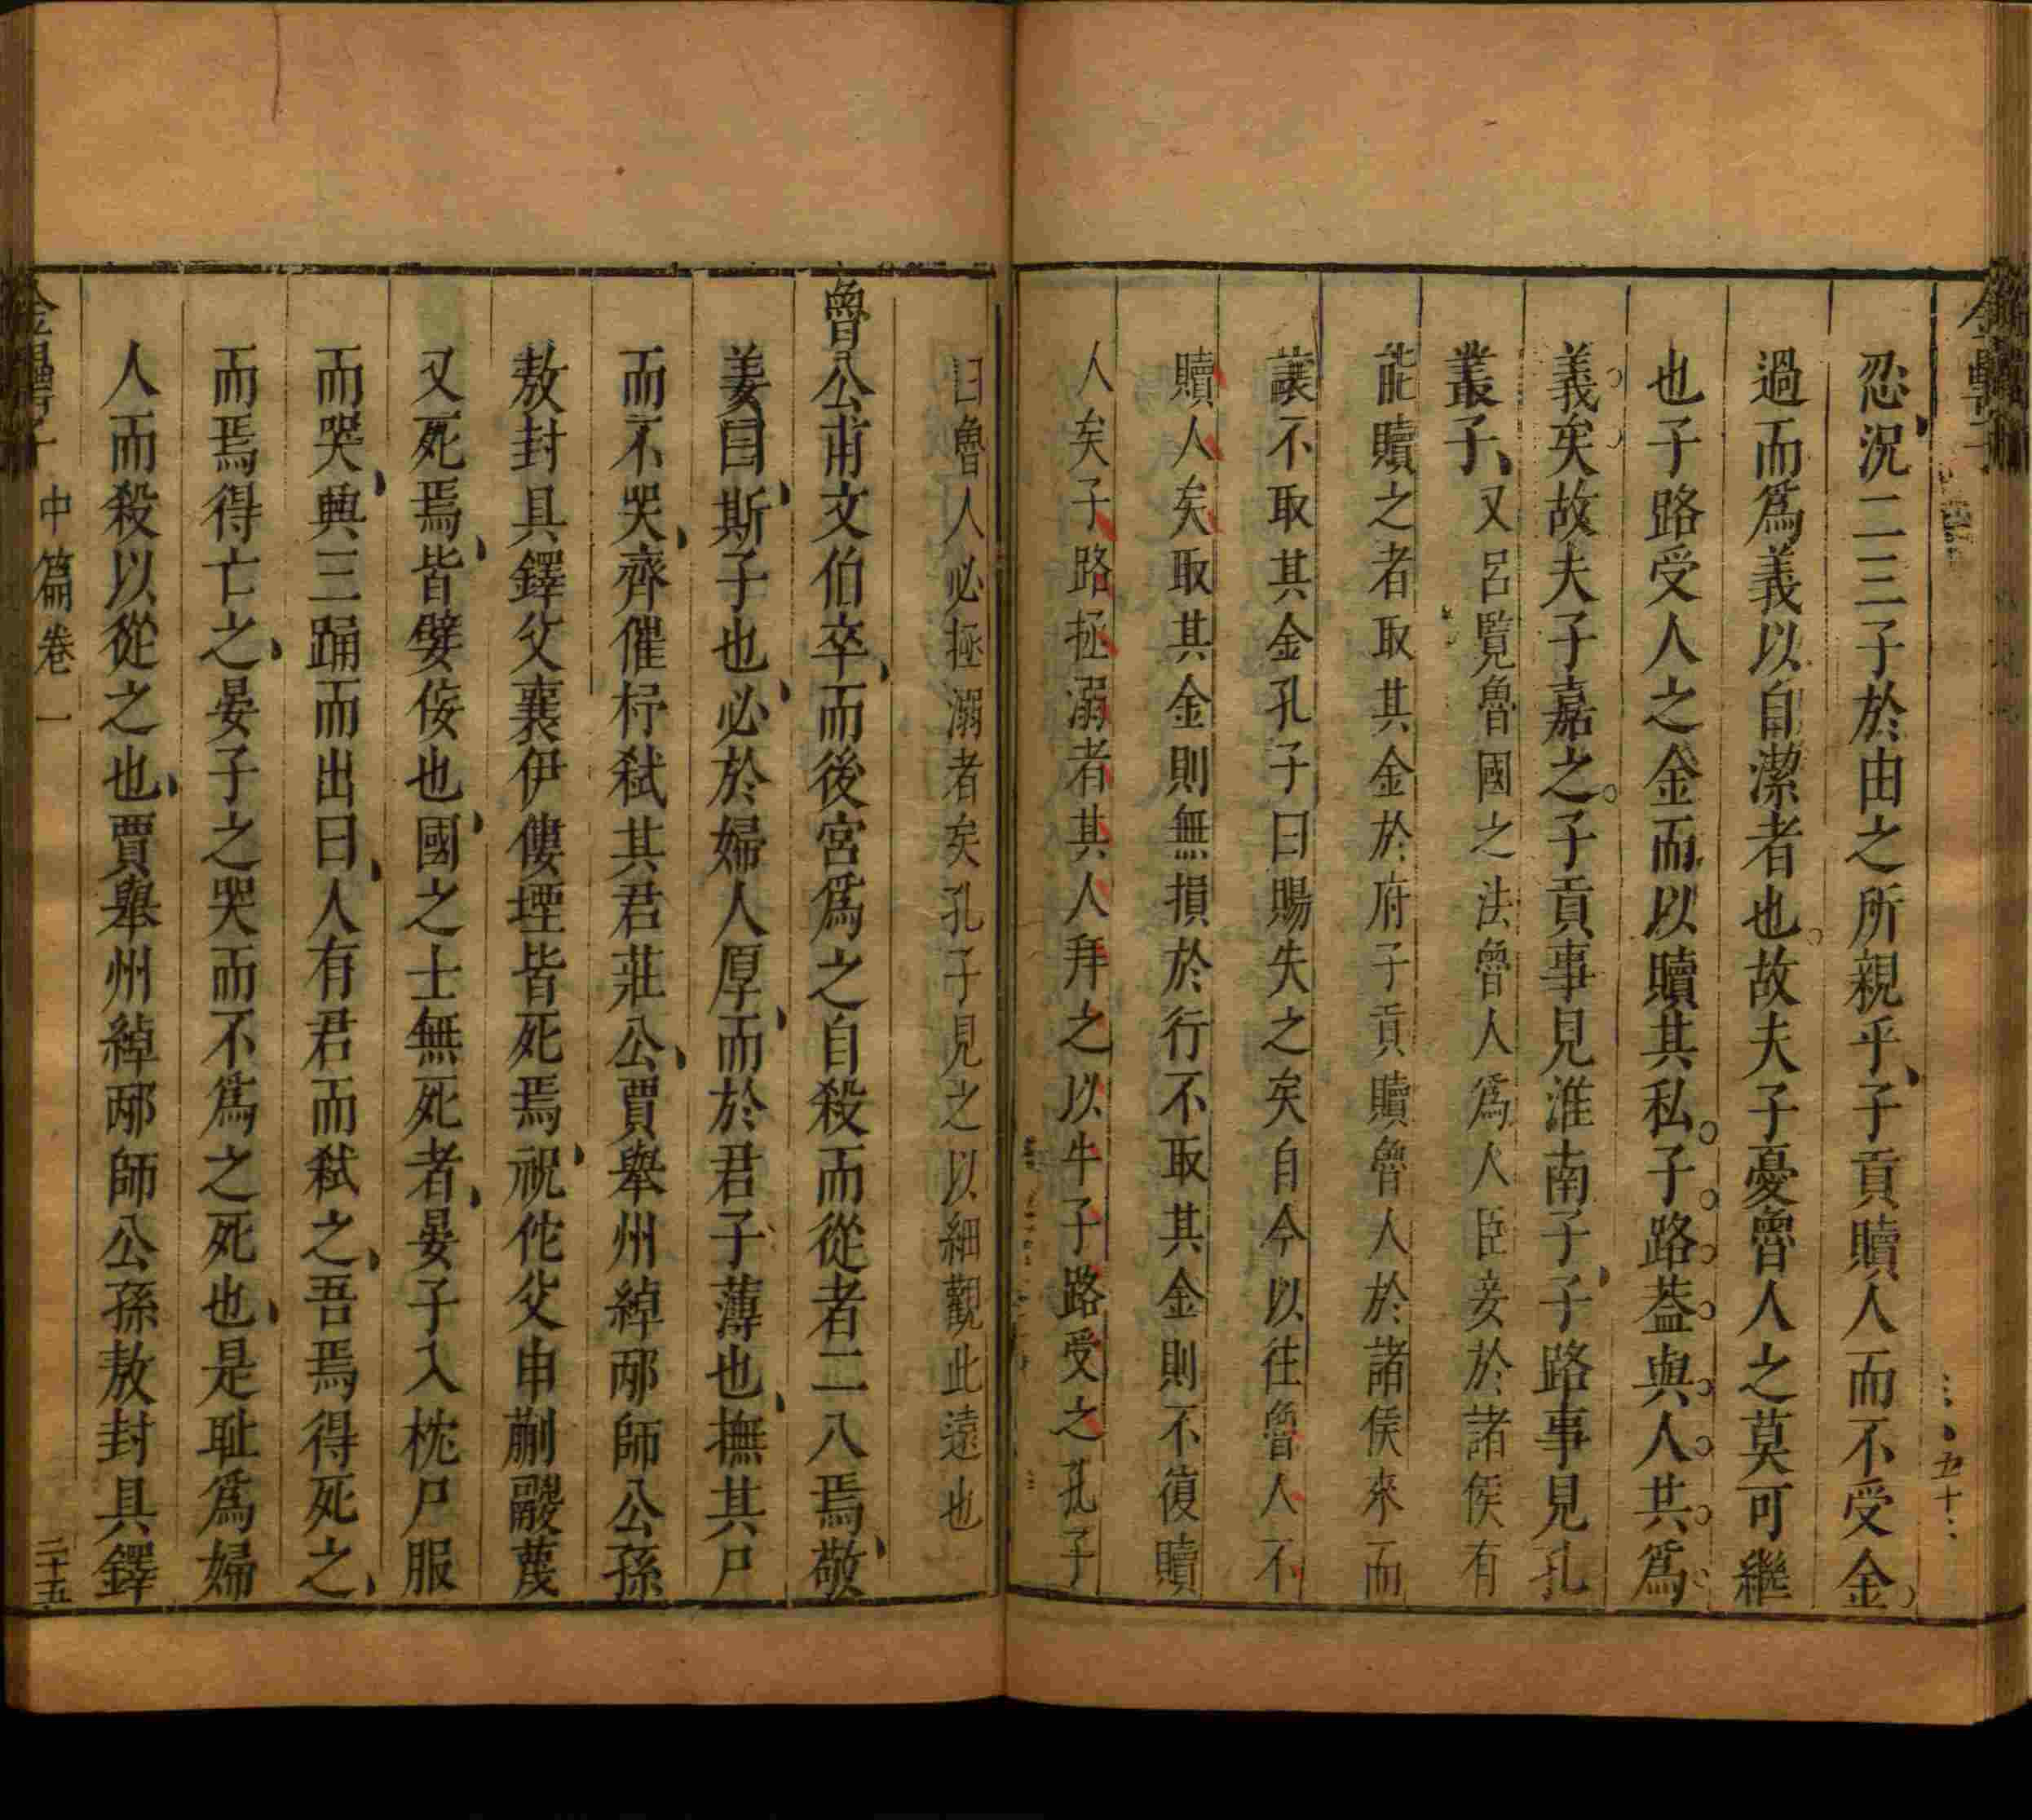 忍況二三子於由之所親乎子貢贖人而不受金
過而爲義以自潔者也故夫子憂魯人之莫可繼
也子路受人之金而以贖其私子路葢與人共爲
義矣故夫子嘉之子貢事見淮南子子路事見孔
叢子又呂覽魯國之法魯人爲人臣妾於諸侯有
能贖之者取其金於府子貢贖魯人於諸侯來而
讓不取其金孔子曰賜失之矣自今以往魯人不
贖人矣取其金則無損於行不取其金則不復贖
人矣子路拯溺者其人拜之以牛子路受之孔子
曰魯人必拯溺者矣孔子見之以細觀此遠也
魯公甫文伯卒而後宮爲之自殺而從者二八焉敬
姜曰斯子也必於婦人厚而於君子薄也撫其尸
而不哭齊催杼弒其君莊公賈舉州綽邴師公孫
敖封具鐸父襄伊僂堙皆死焉祝佗父申蒯鬷蔑
又死焉皆嬖侫也國之士無死者晏子入枕尸服
而哭興三踊而出曰人有君而弒之吾焉得死之
而焉得亡之晏子之哭而不爲之死也是耻爲婦
人而殺以從之也賈舉州綽邴師公孫敖封具鐸
金罍子 中篇卷一 二十五